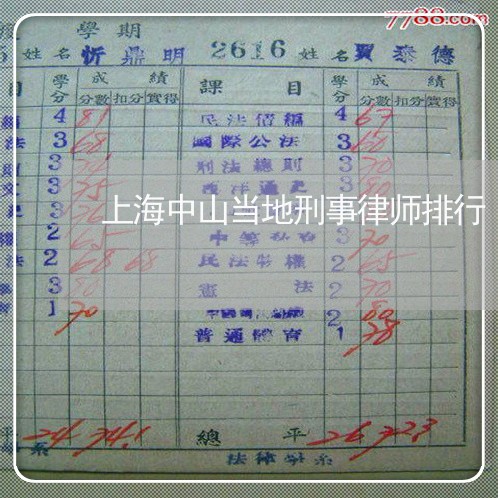 7788.com
學期
5 姓名 忻鼎明 2616 姓名 賈泰德
目 學分 成績 分數 扣分 實得 課目 學分 成績 分數 扣分 實得
4 81 民法債編 4 67
法 3 68 國際公法 3 60
3 刑法總則 3 70
文 3 75 西洋通史 3 80
3 76
上海中山当地刑事律师排行
2 65 3 70
法 2 68 68 民法物權 2 65
3 80 憲法 2 70
1 70 2 80
普通體育 1 78
平 24 74.1 總平 26 72.3
系 法律學系